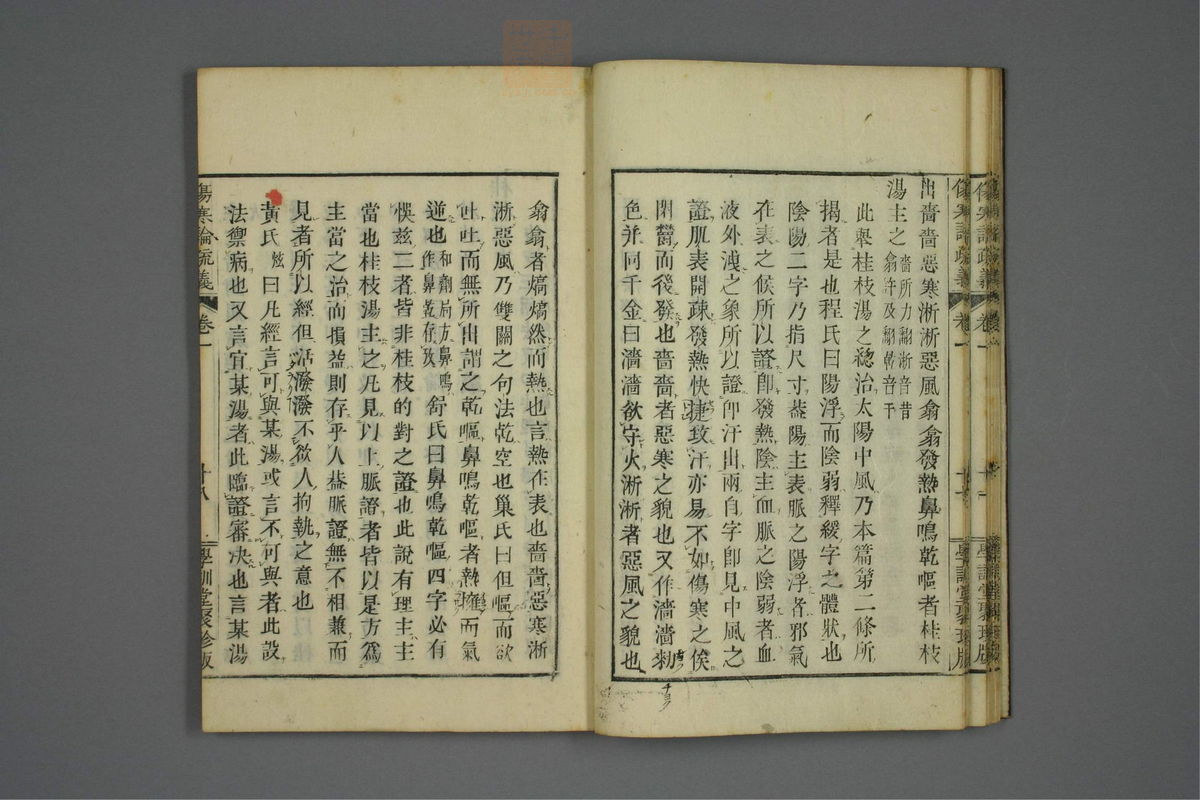 出嗇嗇惡寒淅淅惡風翕翕發熱鼻鳴乾嘔者桂枝
湯主之嗇所力翻淅音昔翕許及翻乾音干
此擧桂枝湯之總治太陽中風乃本篇第二條所
揭者是也程氏曰陽浮而陰弱釋緩字之體狀也
陰陽二字乃指尺寸葢陽主表脈之陽浮者邪氣
在表之候所以證卽發熱陰主血脈之陰弱者血
液外淺之象所以證卽汗出兩自字卽見中風之
證肌表開疎發熱快捷致汗亦易不如傷寒之俟
閉欝而後發也嗇嗇者惡寒之貌也又作濇濇勑
色并同千金曰濇濇欲守火淅淅者惡風之貌也
傷寒論疏義
卷一
學訓堂聚珍版
翕翕者熇熇然而熱也言熱在表也嗇嗇惡寒淅
淅惡風乃雙關之句法乾空也巢氏曰但嘔而欲
吐吐而無所出謂之乾嘔鼻鳴乾嘔者熱擁而氣
逆也和劑局方鼻鳴作鼻乾存攷舒氏曰鼻鳴乾嘔四字必有
悞兹二者皆非桂枝的對之證也此說有理主主
當也桂枝湯主之凡見以上脈證者皆以是方爲
主當之治而損益則存乎人葢脈證無不相兼而
見者所以經但活潑潑不欲人拘執之意也
黃氏炫曰凡經言可與某湯或言不可與者此設
法禦病也又言宜某湯者此臨證審决也言某湯
傷寒論疏義
卷一
十八
學訓堂聚珍版